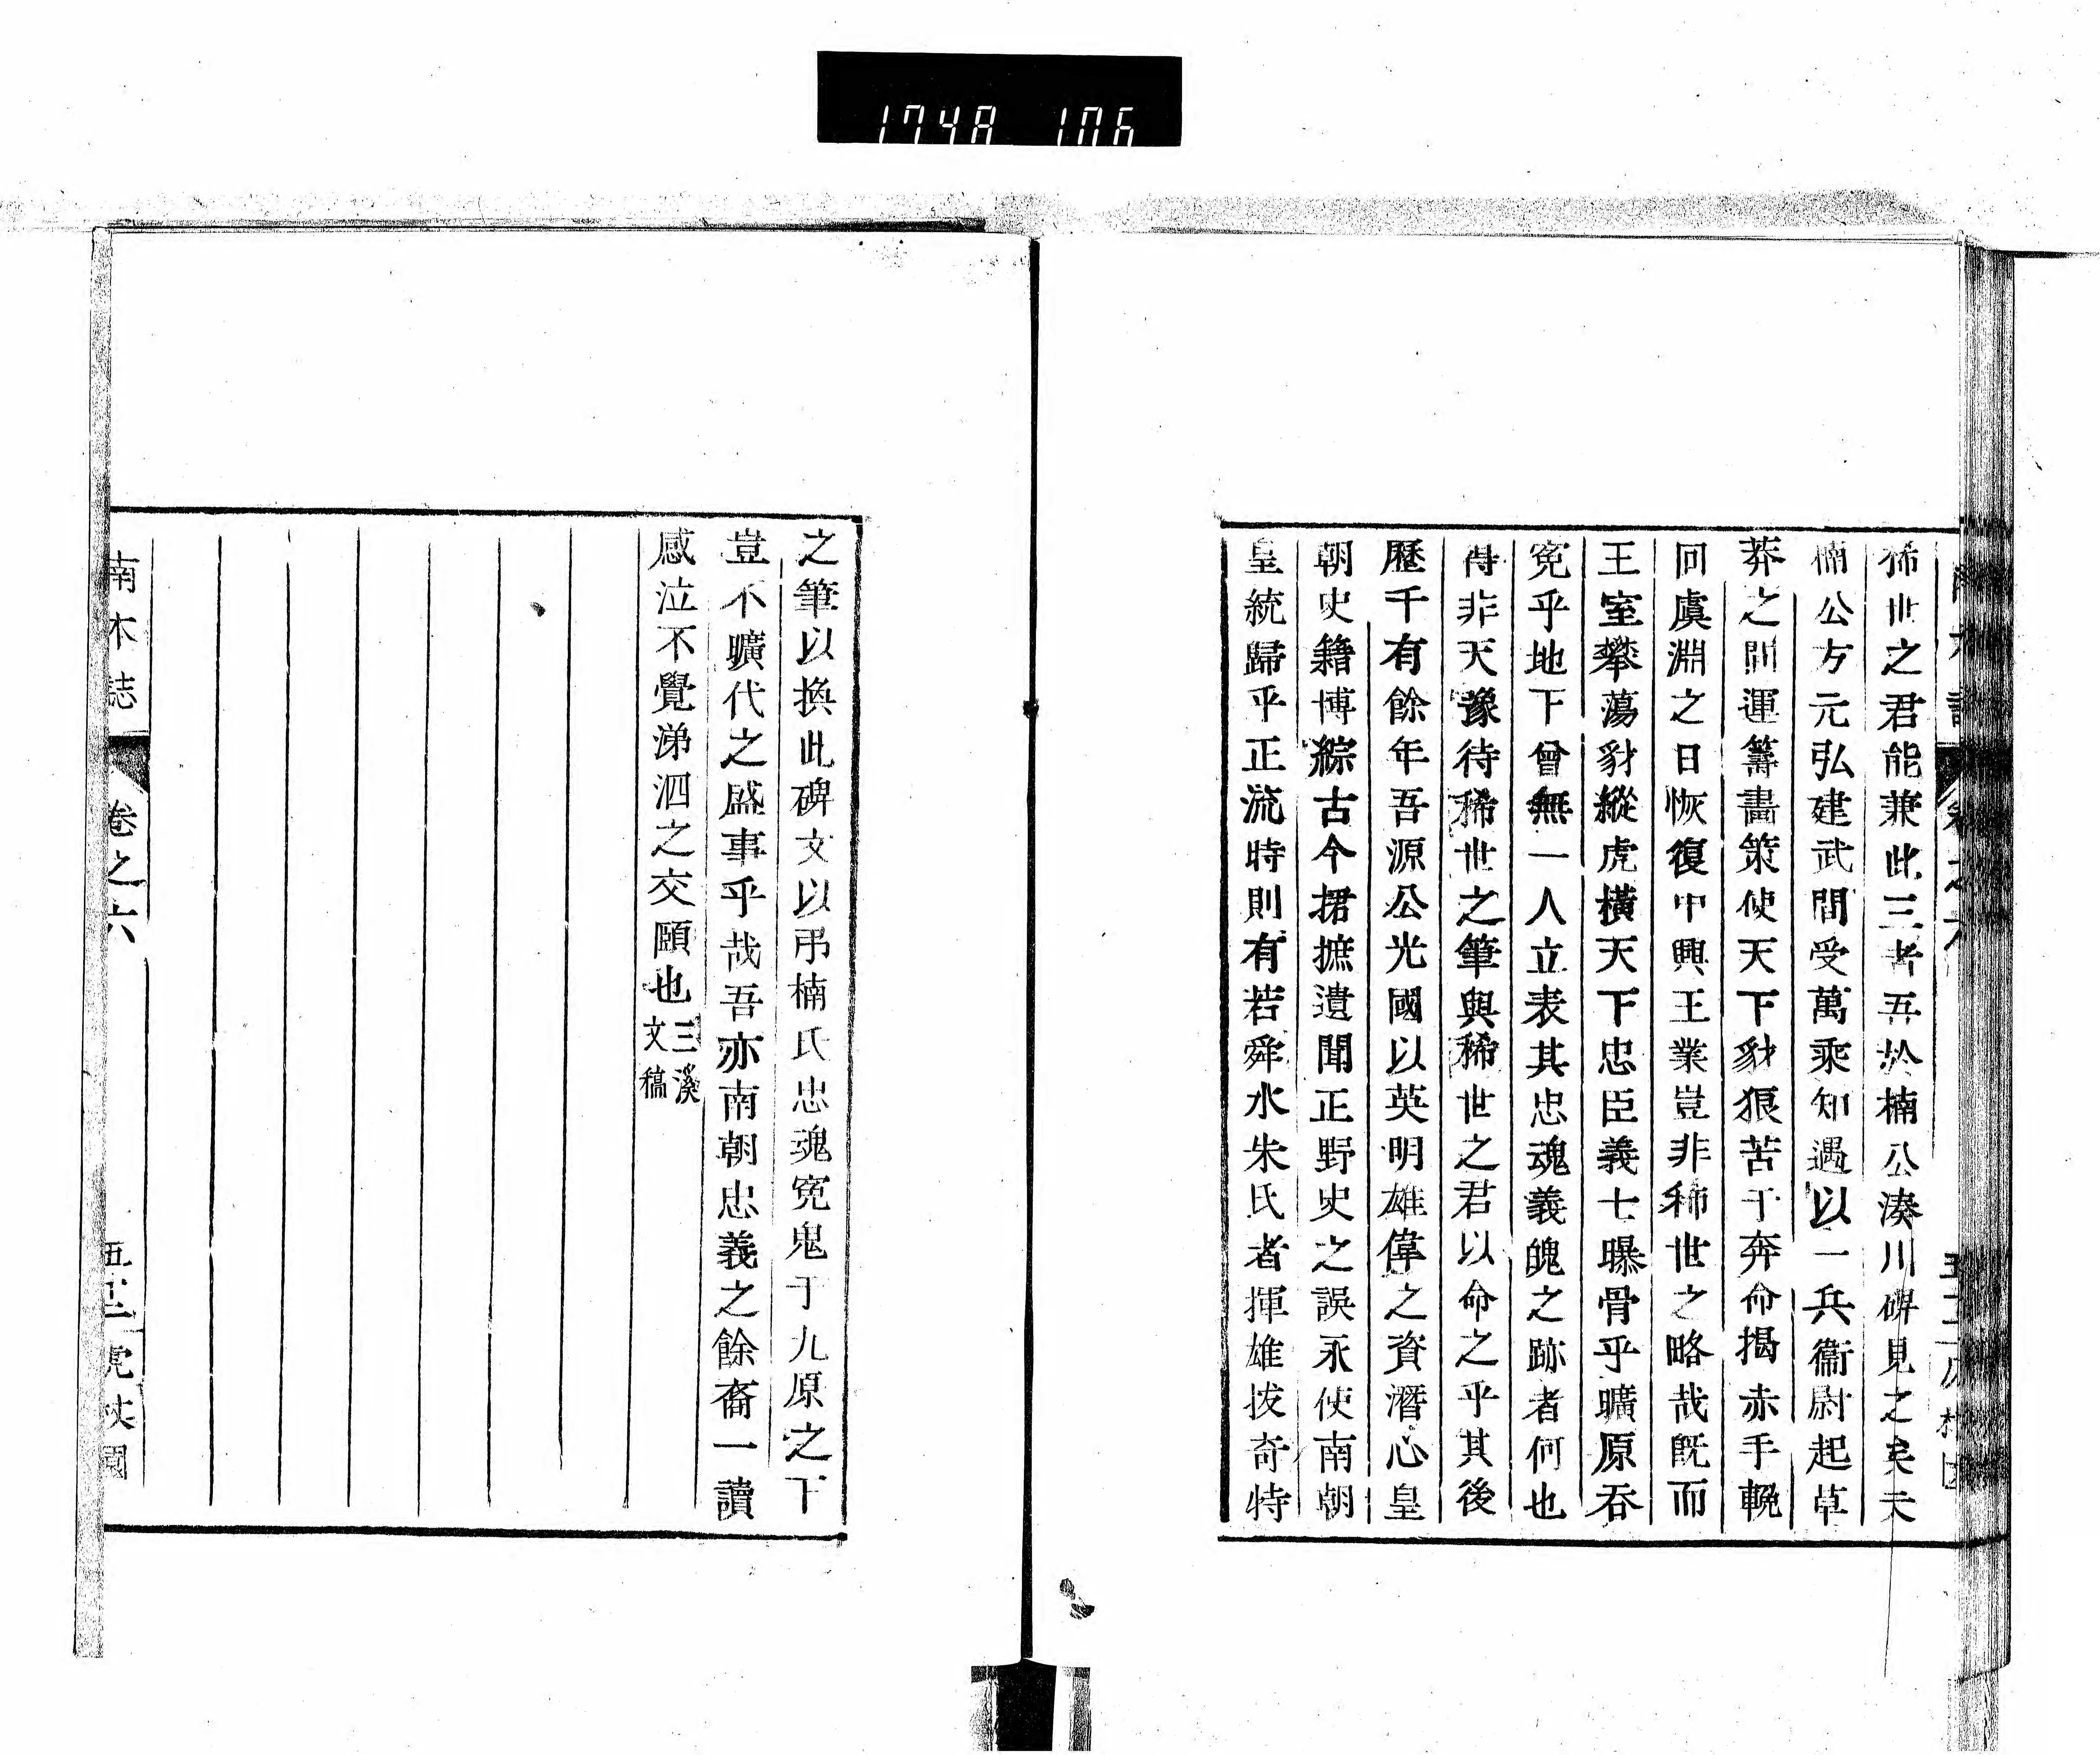 1748 106
稀世之君能兼此三者吾於楠公湊川碑見之矣夫
楠公方元弘建武間受萬乘知遇以一兵衞尉起草
莽之間運籌畫策使天下豺狼苦于奔命揭赤手輓
回虞淵之日恢復中興王業豈非稀世之略哉既而
王室攀蕩豺縱虎橫天下忠臣義士曝骨乎曠原吞
寃乎地下曾無一人立表其忠魂義魄之跡者何也
得非天豫待稀世之筆與稀世之君以命之乎其後
歷千有餘年吾源公光國以英明雄偉之資潛心皇
朝史籍博綜古今捃摭遺聞正野史之誤永使南朝
皇統歸乎正流時則有若舜水朱氏者揮雄拔奇特
之筆以換此碑文以弔楠氏忠魂寃鬼于九原之下
豈不曠代之盛事乎哉吾亦南朝忠義之餘裔一讀
感泣不覺涕泗之交頤也三溪文稿
南木誌 卷之六 虎丈園